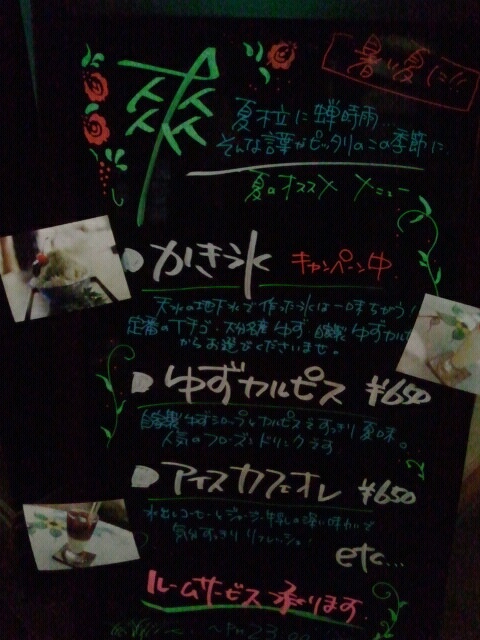 暑い夏に!!
爽
夏木立に蝉時雨
そんな言葉がピッタリのこの季節に
夏のオススメ メニュー
かき氷 キャンペーン中
天水の地下水で作った氷は一味ちがう!
定番のイチゴ、大分産ゆず、自家製ゆずカル
からお選びくださいませ。
ゆずカルピス ¥650
自家製ゆずシロップとカルピスをすっきり夏味。
人気のフローズンドリンクです
アイスカフェオレ ¥650
水出しコーヒーとジャージー牛乳の深い味わいで
気分すっきりリフレッシュ!
etc...
ルームサービス承ります